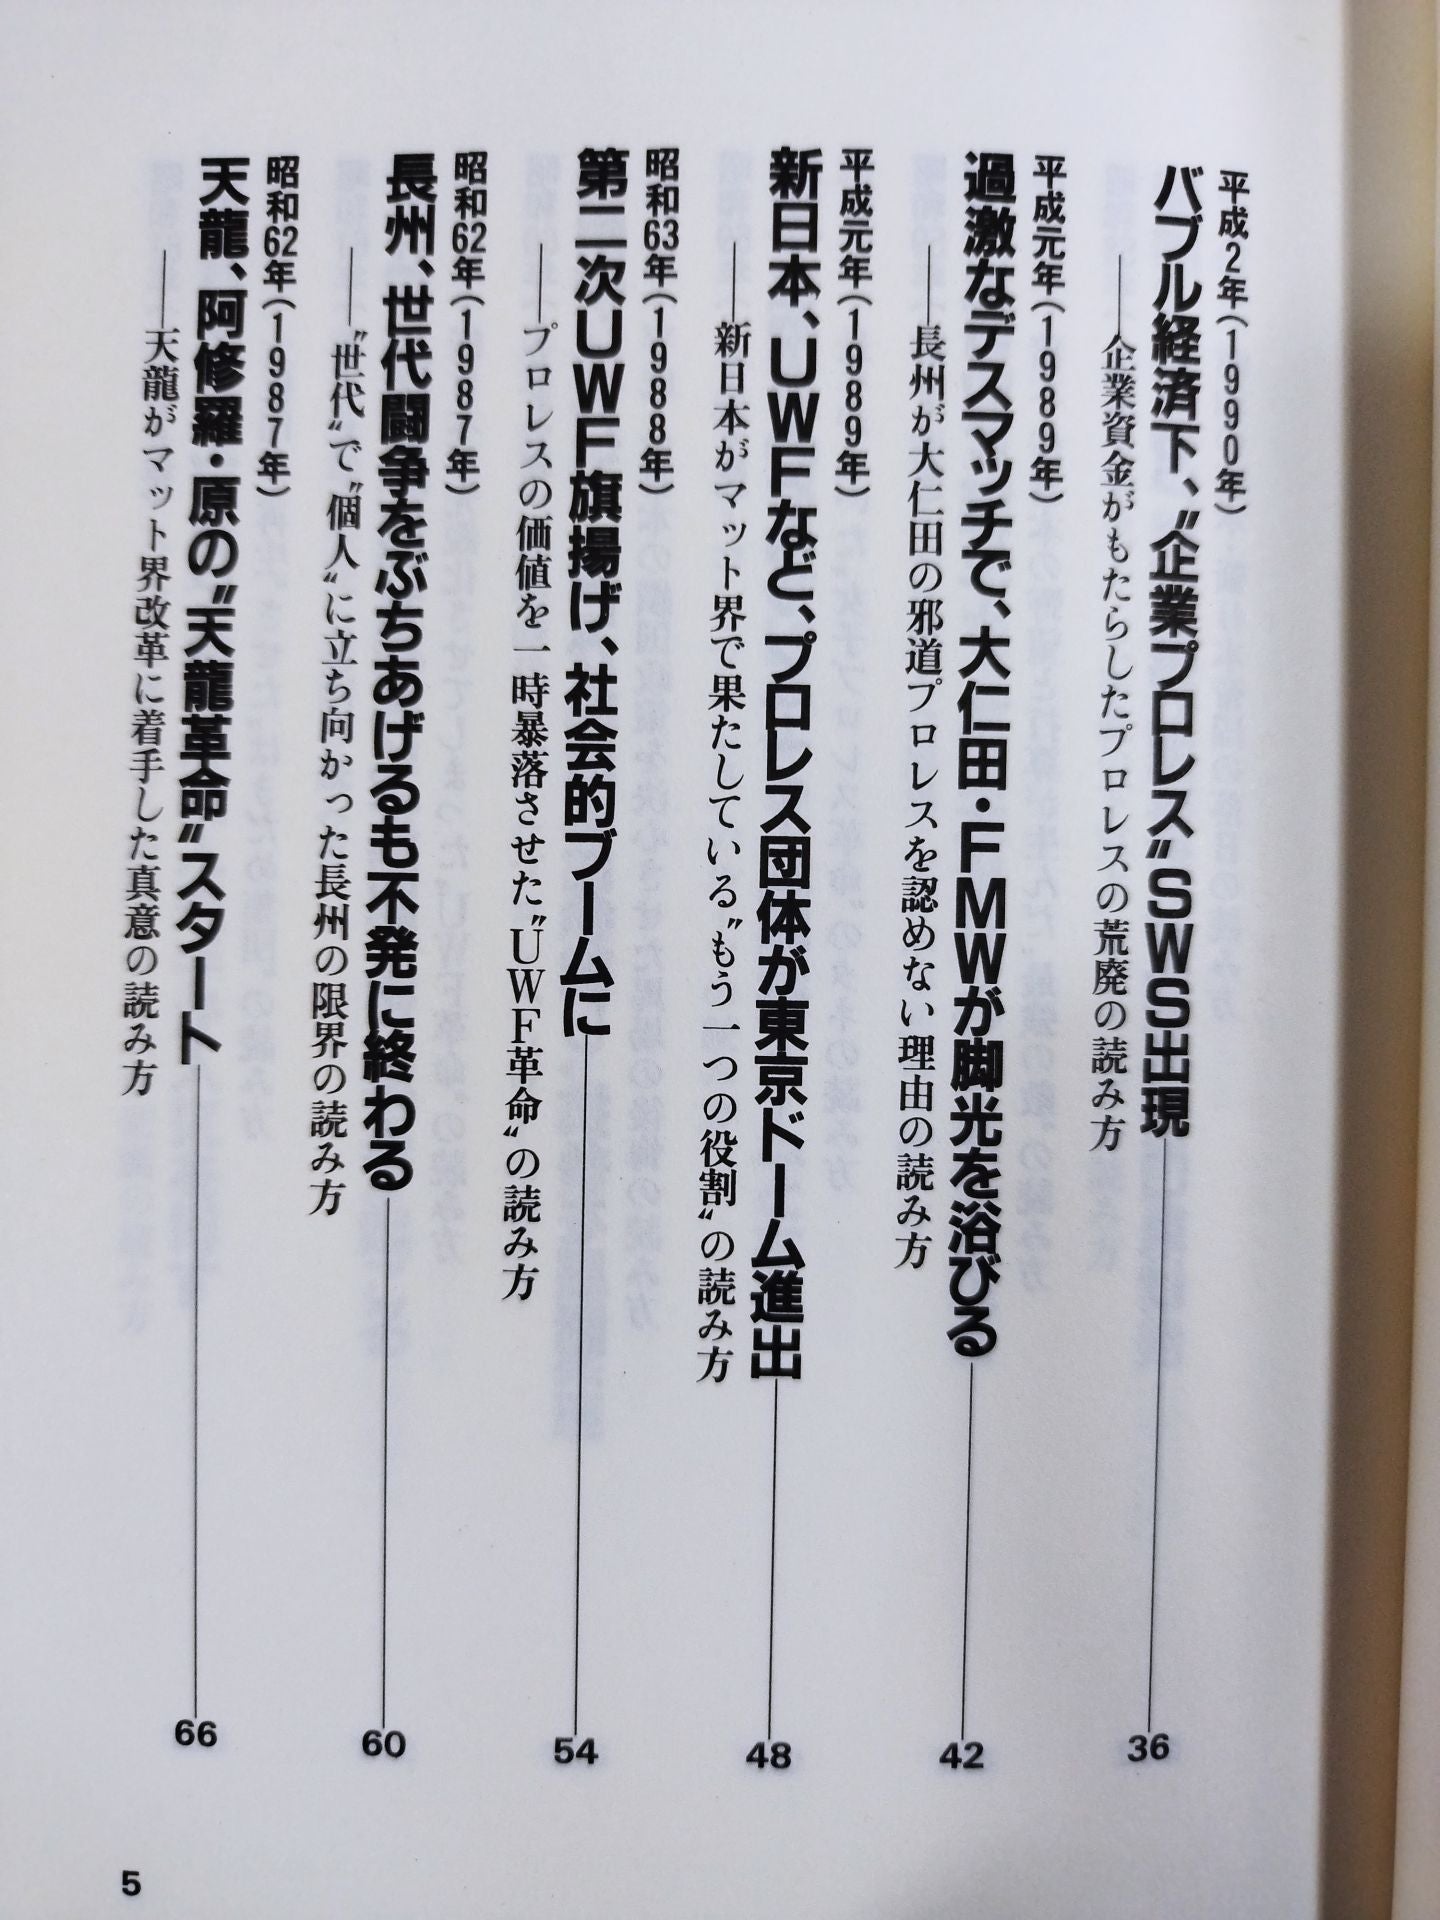 平成2年(1990年)
バブル経済下、〝企業プロレス〟SWS出現
36
——企業資金がもたらしたプロレスの荒廃の読み方
平成元年(1989年)
過激なデスマッチで、大仁田・FMWが脚光を浴びる
42
——長州が大仁田の邪道プロレスを認めない理由の読み方
平成元年(1989年)
新日本、UWFなど、プロレス団体が東京ドーム進出
48
——新日本がマット界で果たしている〝もう一つの役割〟の読み方
昭和63年(1988年)
第二次UWF旗揚げ、社会的ブームに
54
——プロレスの価値を一時暴落させた〝UWF革命〟の読み方
昭和62年(1987年)
長州、世代闘争をぶちあげるも不発に終わる
60
——〝世代〟で〝個人〟に立ち向かった長州の限界の読み方
昭和62年(1987年)
天龍、阿修羅・原の〝天龍革命〟スタート
66
——天龍がマット界改革に着手した真意の読み方
5